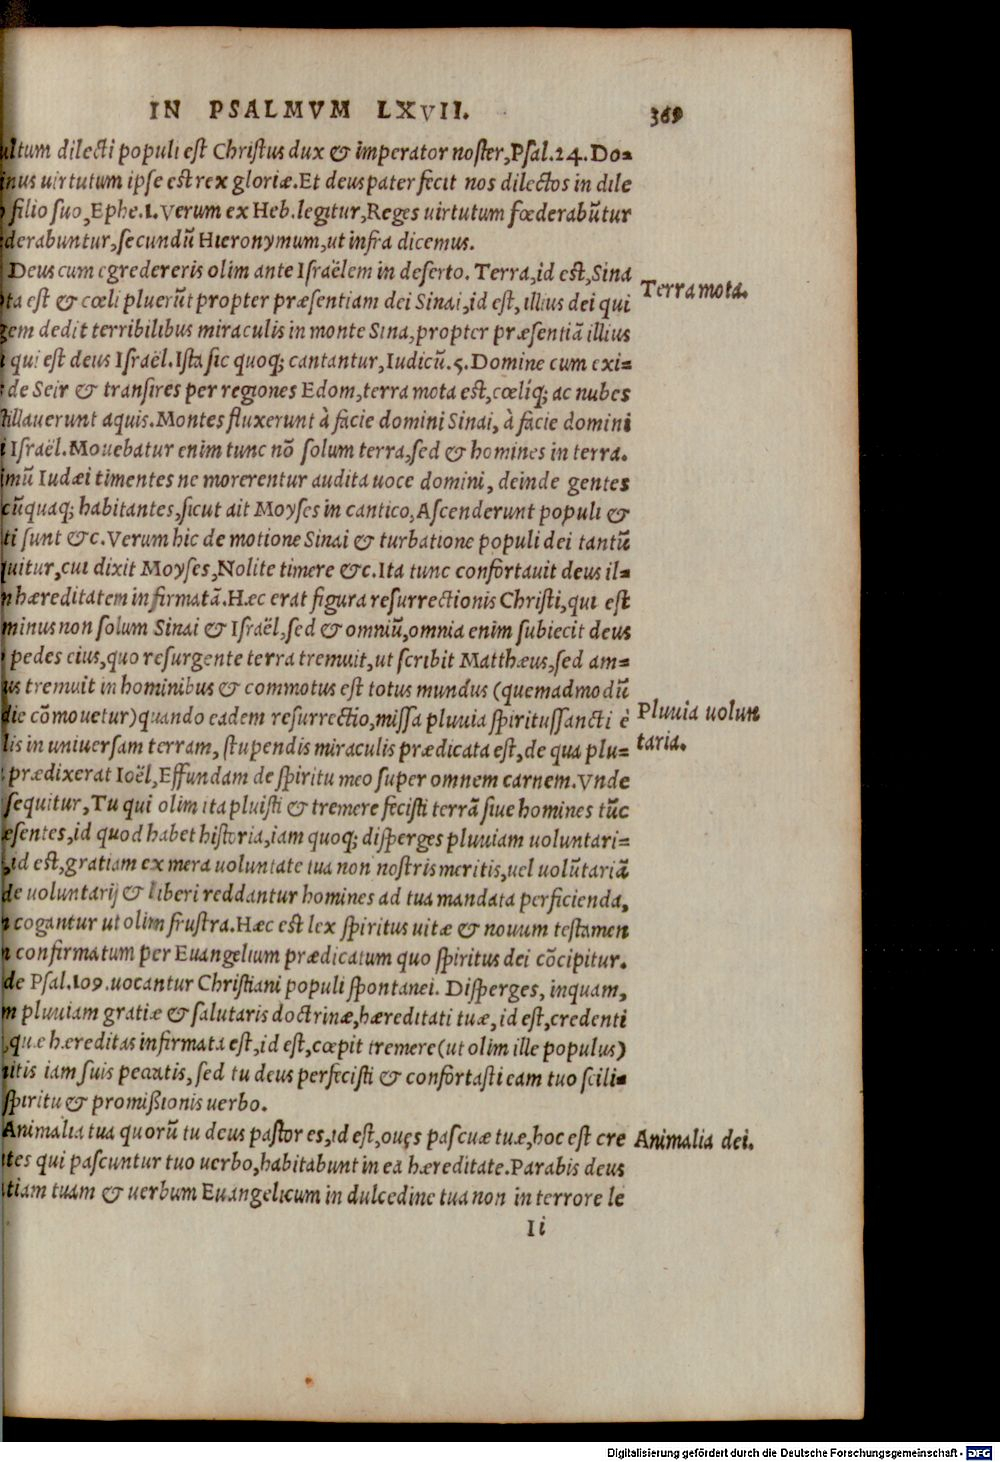 IN PSALMVM LXVII. 369
ultum dilecti populi est Christus dux & imperator noster, Psal.24. Do-
inus uirtutum ipse est rex gloriæ. Et deus pater fecit nos dilectos in dile
filio suo, Ephe.1. Verum ex Heb. legitur, Reges uirtutum fœderabũtur
derabuntur, secundũ Hieronymum, ut infra dicemus.
Deus cum egredereris olim ante Israëlem in deserto. Terra, id est, Sina
ta est & cœli pluerũt propter præsentiam dei Sinai, id est, illius dei qui
gem dedit terribilibus miraculis in monte Sina, propter præsentiã illius
i qui est deus Israël. Ista sic quoq; cantantur, Iudicũ.5. Domine cum exi-
de Seir & transires per regiones Edom, terra mota est, cœliq; ac nubes
tillauerunt aquis. Montes fluxerunt à facie domini Sinai, à facie domini
i Israël. Mouebatur enim tunc nõ solum terra, sed & homines in terra.
imũ Iudæi timentes ne morerentur audita uoce domini, deinde gentes
cũquaq; habitantes, sicut ait Moyses in cantico, Ascenderunt populi &
ti sunt &c. Verum hic de motione Sinai & turbatione populi dei tantũ
uitur, cui dixit Moyses, Nolite timere &c. Ita tunc confortauit deus il-
n hæreditatem infirmatã. Hæc erat figura resurrectionis Christi, qui est
minus non solum Sinai & Israël, sed & omniũ, omnia enim subiecit deus
pedes eius, quo resurgente terra tremuit, ut scribit Matthæus, sed am-
us tremuit in hominibus & commotus est totus mundus (quemadmodũ
die cõmouetur) quando eadem resurrectio, missa pluuia spiritussancti è
lis in uniuersam terram, stupendis miraculis prædicata est, de qua plu-
prædixerat Ioël, Effundam de spiritu meo super omnem carnem. Vnde
sequitur, Tu qui olim ita pluisti & tremere fecisti terrã siue homines tũc
æsentes, id quod habet historia, iam quoq; disperges pluuiam uoluntari-
, id est, gratiam ex mera uoluntate tua non nostris meritis, uel uolũtariã
de uoluntarij & liberi reddantur homines ad tua mandata perficienda,
n cogantur ut olim frustra. Hæc est lex spiritus uitæ & nouum testamen
n confirmatum per Euangelium prædicatum quo spiritus dei cõcipitur.
de Psal.109. uocantur Christiani populi spontanei. Disperges, inquam,
m pluuiam gratiæ & salutaris doctrinæ, hæreditati tuæ, id est, credenti
, quæ hæreditas infirmata est, id est, cœpit tremere (ut olim ille populus)
itis iam suis peccatis, sed tu deus perfecisti & confortasti eam tuo scili-
spiritu & promißionis uerbo.
Animalia tua quorũ tu deus pastor es, id est, oues pascuæ tuæ, hoc est cre
tes qui pascuntur tuo uerbo, habitabunt in ea hæreditate. Parabis deus
tiam tuam & uerbum Euangelicum in dulcedine tua non in terrore le
Ii
Terra mota.
Pluuia uolun
taria.
Animalia dei.
Digitalisierung gefördert durch die Deutsche Forschungsgemeinschaft - DFG